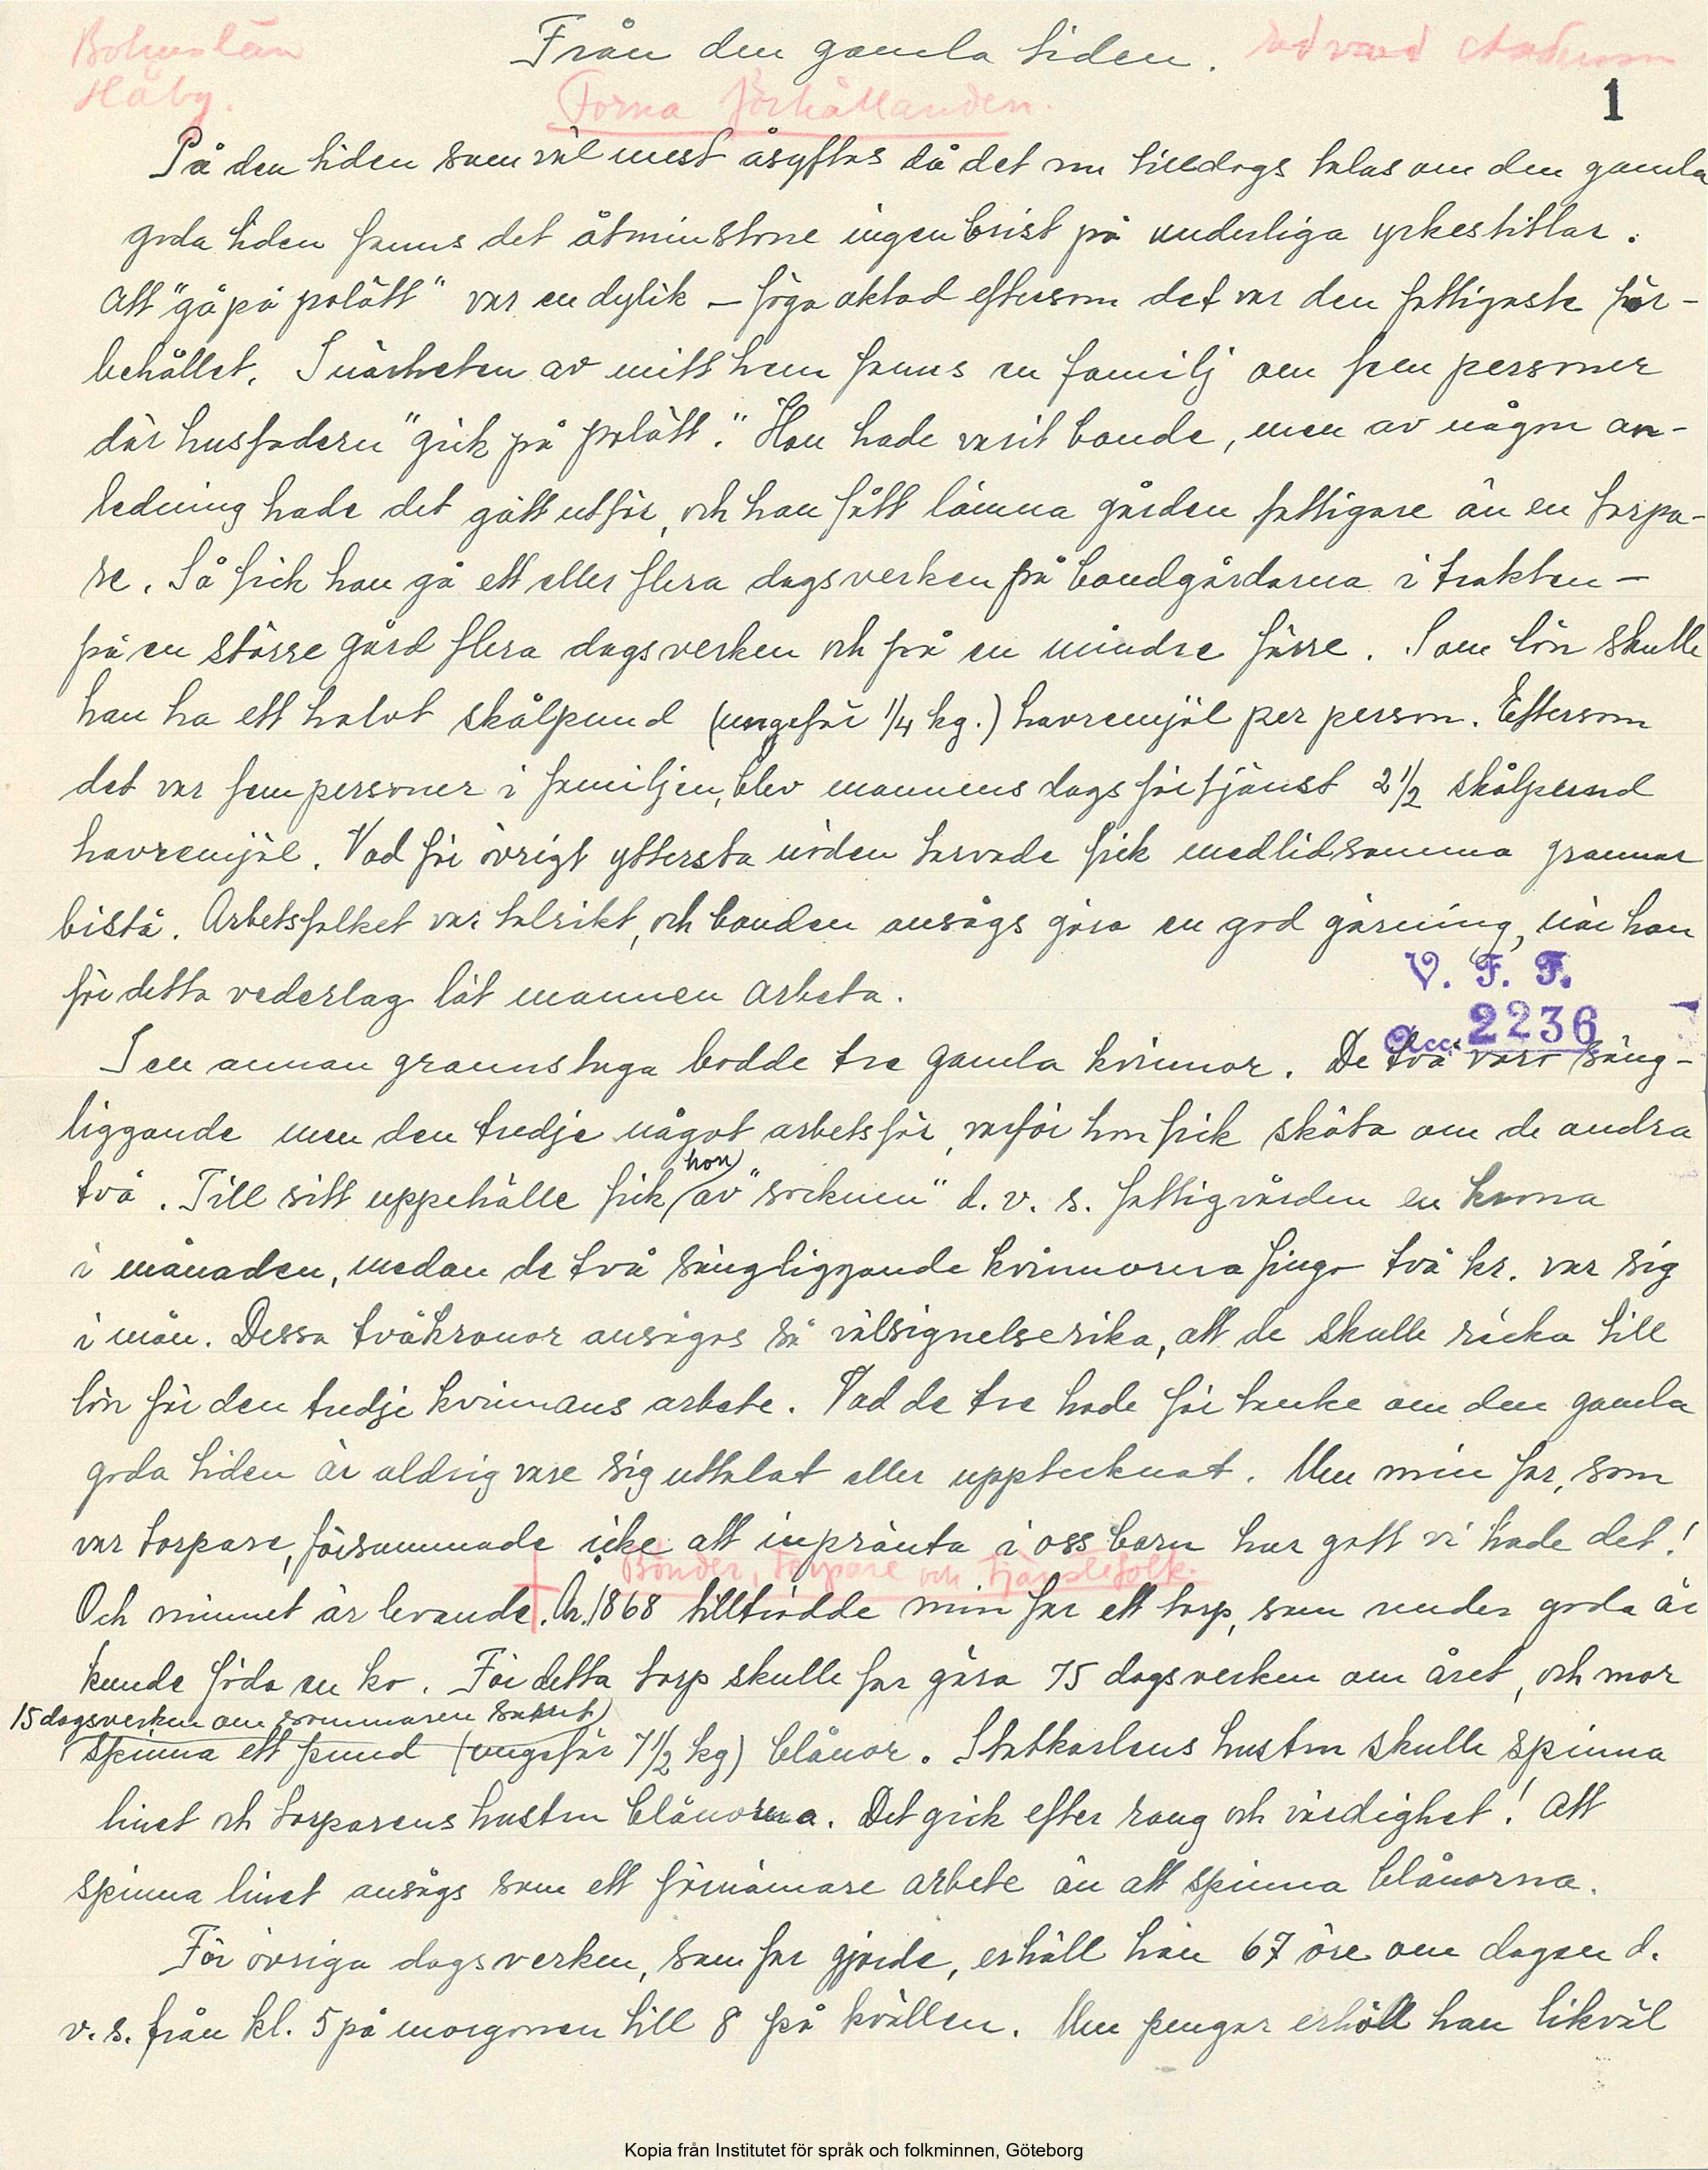 Bohuslän
Håby.
Från den gamla tiden.
Edvard Andersson
1
Forna förhållanden.
På den tiden som väl mest åsyftas då det nu tilldags talas om den gamla
goda tiden fanns det åtminstone ingen brist på underliga yrkestitlar.
Att "gå på polätt" var en dylik – föga aktad eftersom det var den fattigaste för-
behållet. I närheten av mitt hem fanns en familj om fem personer
där husfadern "gick på polätt." Han hade varit bonde, men av någon an-
ledning hade det gått utför, och han fått lämna gården fattigare än en torpa-
re. Så fick han gå ett eller flera dagsverken på bondgårdarna i trakten –
på en större gård flera dagsverken och på en mindre färre. Som lön skulle
han ha ett halvt skålpund (ungefär 1/4 kg.) havremjöl per person. Eftersom
det var fem personer i familjen, blev mannens dagsförtjänst 2 1/2 skålpund
havremjöl. Vad för övrigt yttersta nöden tarvade fick medlidsamma grannar
bistå. Arbetsfolket var talrikt, och bonden ansågs göra en god gärning, när han
för detta vederlag lät mannen arbeta.
V. F. F.
Acc: 2236
I en annan grannstuga bodde tre gamla kvinnor. De två voro säng-
liggande men den tredje något arbetsför, varför hon fick sköta om de andra
två. Till sitt uppehälle fick hon av "socknen" d. v. s. fattigvården en krona
i månaden, medan de två sängliggande kvinnorna fingo två kr. var sig
i mån. Dessa tvåkronor ansågos så välsignelserika, att de skulle räcka till
lön för den tredje kvinnans arbete. Vad de tre hade för tanke om den gamla
goda tiden är aldrig vare sig uttalat eller upptecknat. Men min far, som
var torpare, försummade icke att inpränta i oss barn hur gott vi hade det!
Bönder, torpare och tjänstefolk.
Och minnet är levande. År 1868 tillträdde min far ett torp, som under goda år
kunde föda en ko. För detta torp skulle far göra 75 dagsverken om året, och mor
15 dagsverken om sommaren samt
spinna ett pund (ungefär 7 1/2 kg) blånor. Statkarlens hustru skulle spinna
linet och torparens hustru blånorna. Det gick efter rang och värdighet! Att
spinna linet ansågs som ett förnämare arbete än att spinna blånorna.
För övriga dagsverken, som far gjorde, erhöll han 67 öre om dagen d.
v. s. från kl. 5 på morgonen till 8 på kvällen. Men pengar erhöll han likväl
Kopia från Institutet för språk och folkminnen, Göteborg